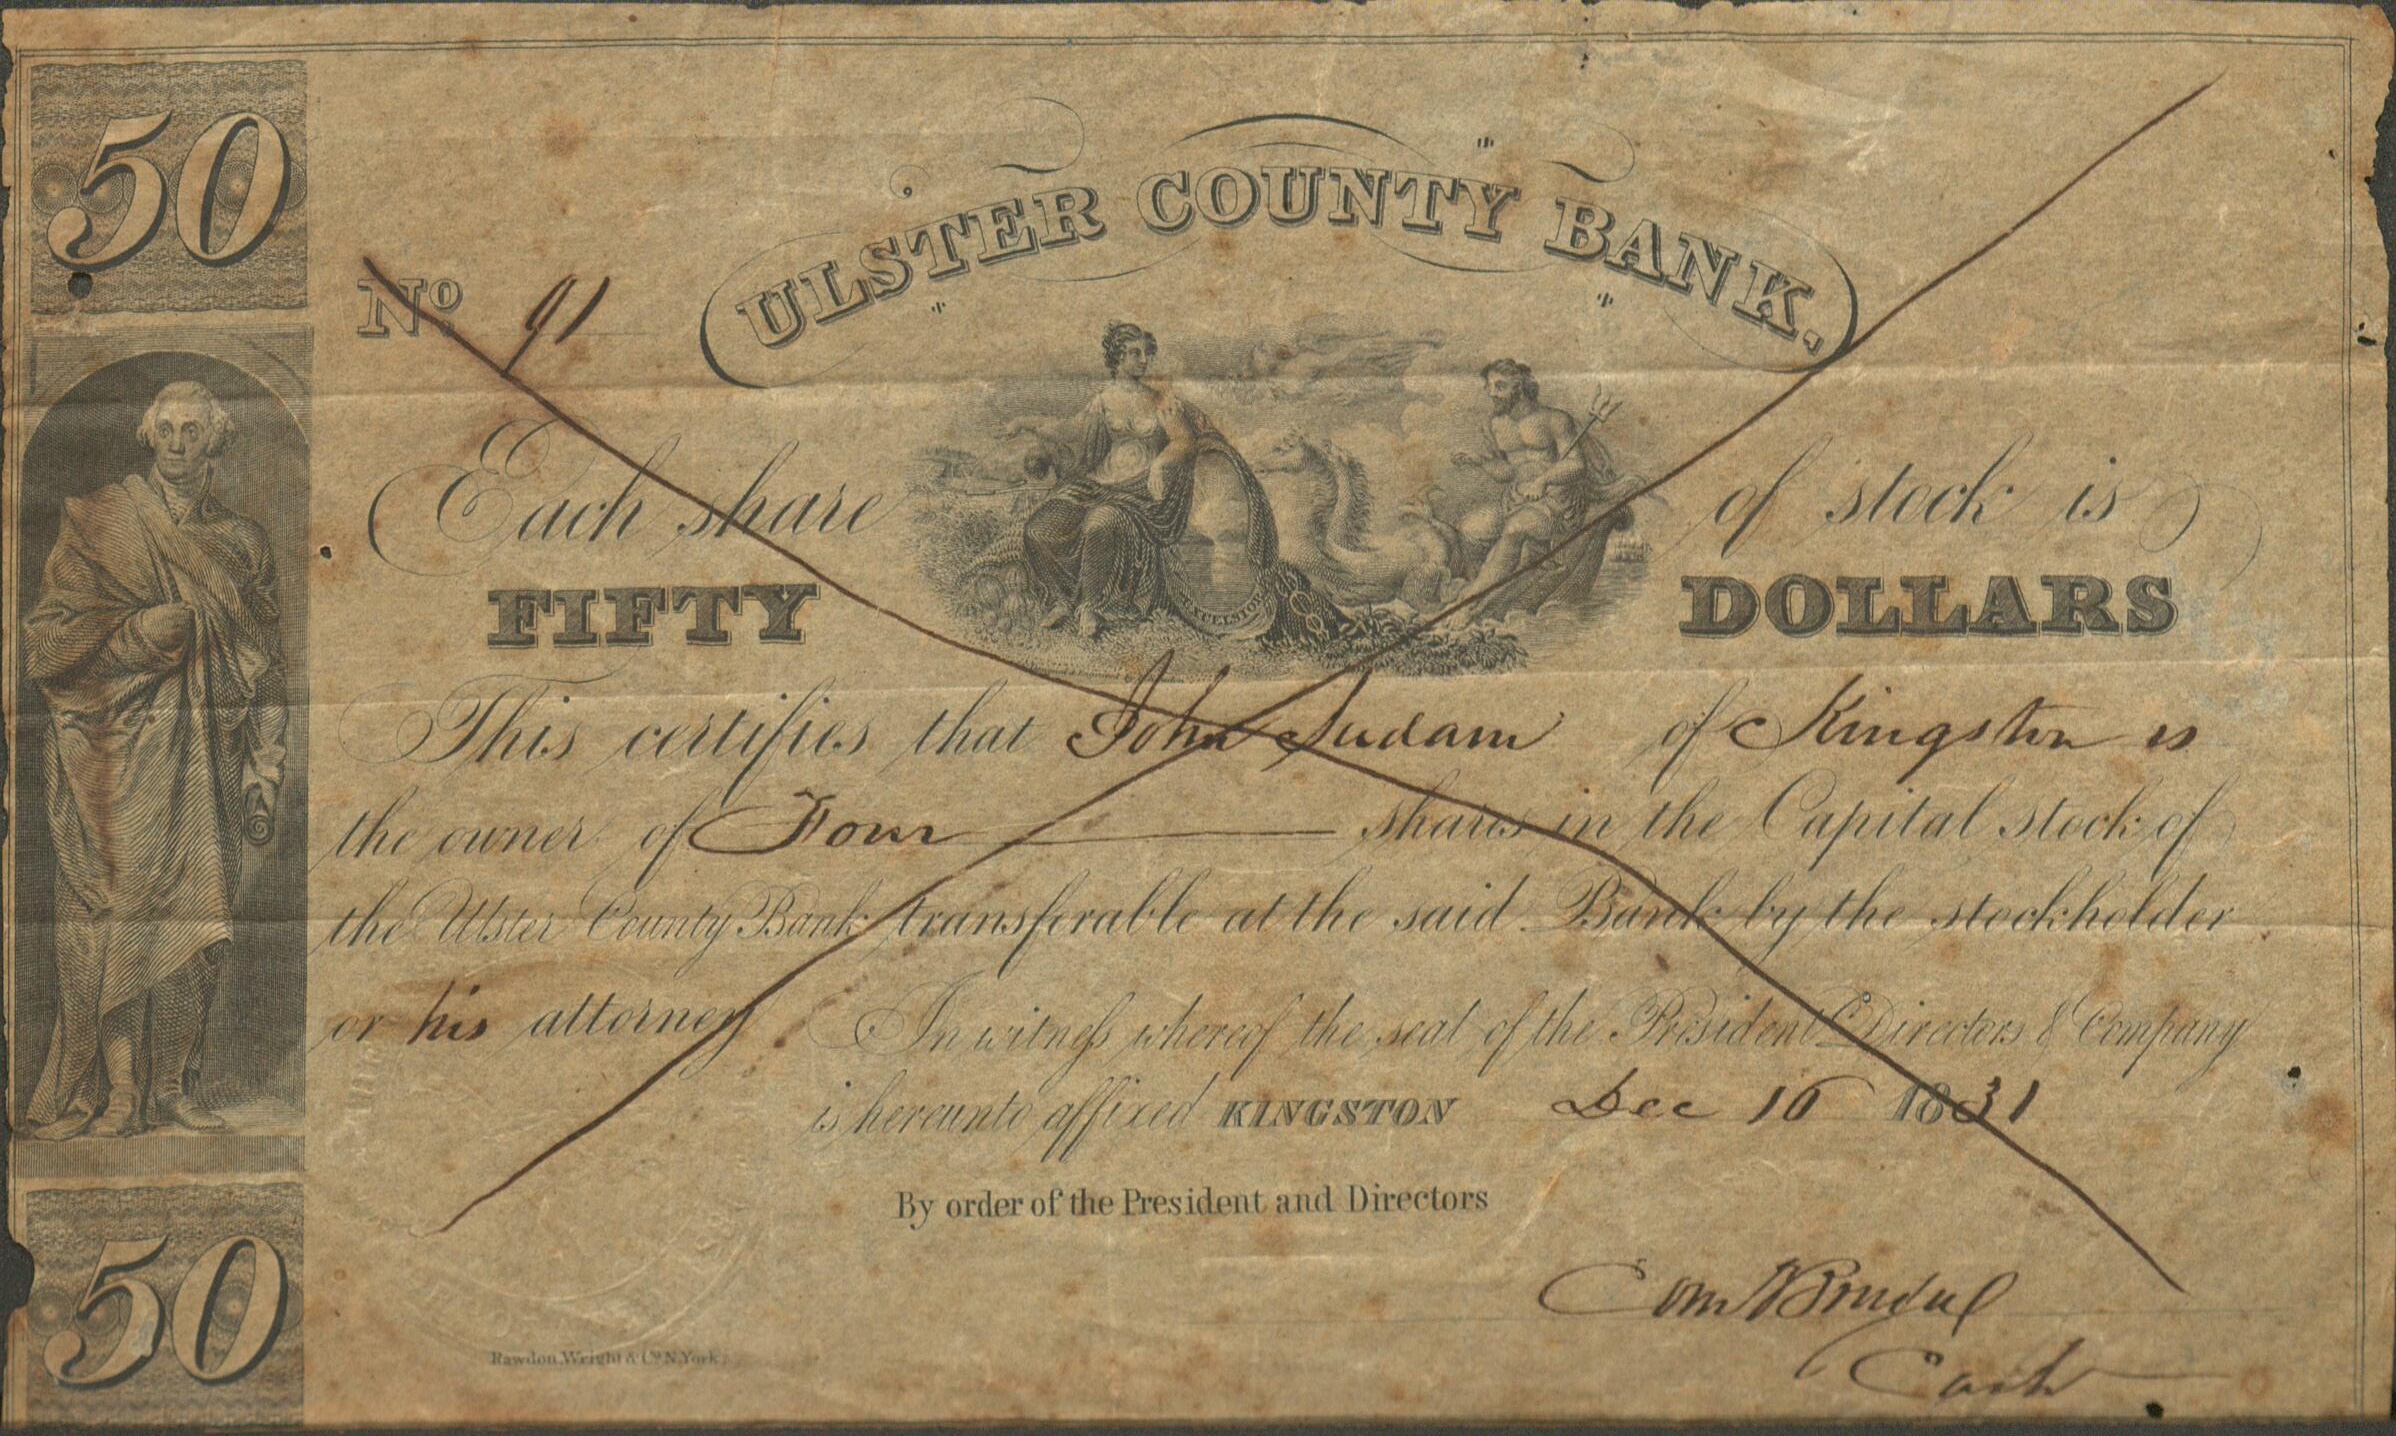 50
ULSTER COUNTY BANK.
No. 91
Each share of stock is
FIFTY DOLLARS
EXCELSIOR
This certifies that John Sudam of Kingston is
the owner of Four shares in the Capital stock of
the Ulster County Bank transferable at the said Bank by the stockholder
or his attorney In witness whereof the seal of the President Directors & Company
is hereunto affixed KINGSTON Dec 16 1831
By order of the President and Directors
50
Cash
Rawdon, Wright & Co. N. York.